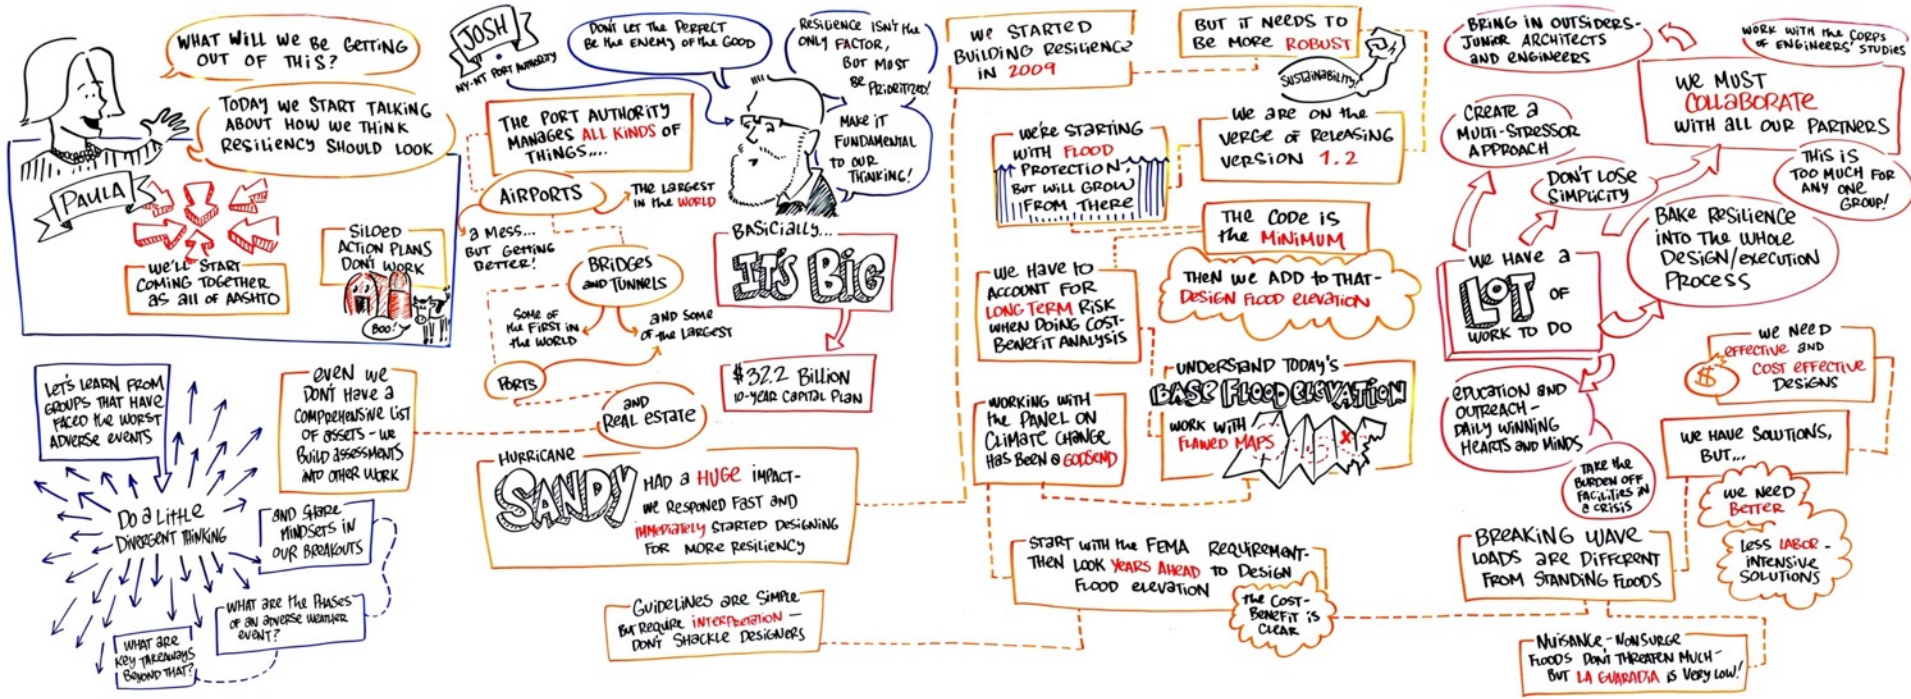 WHAT WILL WE BE GETTING
OUT OF THIS?
TODAY WE START TALKING
ABOUT HOW WE THINK
RESILIENCY SHOULD LOOK
PAULA
WE'LL START
COMING TOGETHER
AS ALL OF AASHTO
SILOED
ACTION PLANS
DON'T WORK
BOO!
LET'S LEARN FROM
GROUPS THAT HAVE
FACED THE WORST
ADVERSE EVENTS
DO A LITTLE
DIVERGENT THINKING
AND SHARE
MINDSETS IN
OUR BREAKOUTS
WHAT ARE THE PHASES
OF AN ADVERSE WEATHER
EVENT?
WHAT ARE
KEY TAKEAWAYS
BEYOND THAT?
EVEN WE
DON'T HAVE A
COMPREHENSIVE LIST
OF ASSETS - WE
BUILD ASSESSMENTS
INTO OTHER WORK
JOSH
NY-NJ PORT AUTHORITY
DON'T LET THE PERFECT
BE THE ENEMY OF THE GOOD
RESILIENCE ISN'T THE
ONLY FACTOR,
BUT MUST
BE PRIORITIZED!
MAKE IT
FUNDAMENTAL
TO OUR
THINKING!
THE PORT AUTHORITY
MANAGES ALL KINDS OF
THINGS....
AIRPORTS
THE LARGEST
IN THE WORLD
A MESS...
BUT GETTING
BETTER!
BRIDGES
AND TUNNELS
SOME OF
THE FIRST IN
THE WORLD
AND SOME
OF THE LARGEST
PORTS
AND
REAL ESTATE
BASICIALLY...
IT'S BIG
$32.2 BILLION
10-YEAR CAPITAL PLAN
HURRICANE
SANDY
HAD A HUGE IMPACT-
WE RESPONED FAST AND
IMMEDIATELY STARTED DESIGNING
FOR MORE RESILIENCY
GUIDELINES ARE SIMPLE
BUT REQUIRE INTERPRETATION -
DON'T SHACKLE DESIGNERS
WE STARTED
BUILDING RESILIENCE
IN 2009
BUT IT NEEDS TO
BE MORE ROBUST
SUSTAINABILITY!
WE ARE ON THE
VERGE OF RELEASING
VERSION 1.2
WE'RE STARTING
WITH FLOOD
PROTECTION,
BUT WILL GROW
FROM THERE
THE CODE IS
THE MINIMUM
THEN WE ADD TO THAT-
DESIGN FLOOD ELEVATION
WE HAVE TO
ACCOUNT FOR
LONG TERM RISK
WHEN DOING COST-
BENEFIT ANALYSIS
UNDERSTAND TODAY'S
BASE FLOOD ELEVATION
WORK WITH
FLAWED MAPS
WORKING WITH
THE PANEL ON
CLIMATE CHANGE
HAS BEEN A GODSEND
START WITH THE FEMA REQUIREMENT-
THEN LOOK YEARS AHEAD TO DESIGN
FLOOD ELEVATION
THE COST-
BENEFIT IS
CLEAR
BRING IN OUTSIDERS-
JUNIOR ARCHITECTS
AND ENGINEERS
WORK WITH THE CORPS
OF ENGINEERS' STUDIES
WE MUST
COLLABORATE
WITH ALL OUR PARTNERS
CREATE A
MULTI-STRESSOR
APPROACH
DON'T LOSE
SIMPLICITY
THIS IS
TOO MUCH FOR
ANY ONE
GROUP!
BAKE RESILIENCE
INTO THE WHOLE
DESIGN/EXECUTION
PROCESS
WE HAVE A
LOT OF
WORK TO DO
EDUCATION AND
OUTREACH -
DAILY WINNING
HEARTS AND MINDS
TAKE THE
BURDEN OFF
FACILITIES IN
A CRISIS
WE NEED
EFFECTIVE AND
COST EFFECTIVE
DESIGNS
$
WE HAVE SOLUTIONS,
BUT...
WE NEED
BETTER
LESS LABOR-
INTENSIVE
SOLUTIONS
BREAKING WAVE
LOADS ARE DIFFERENT
FROM STANDING FLOODS
NUISANCE, NONSURGE
FLOODS DON'T THREATEN MUCH-
BUT LA GUARADIA IS VERY LOW!